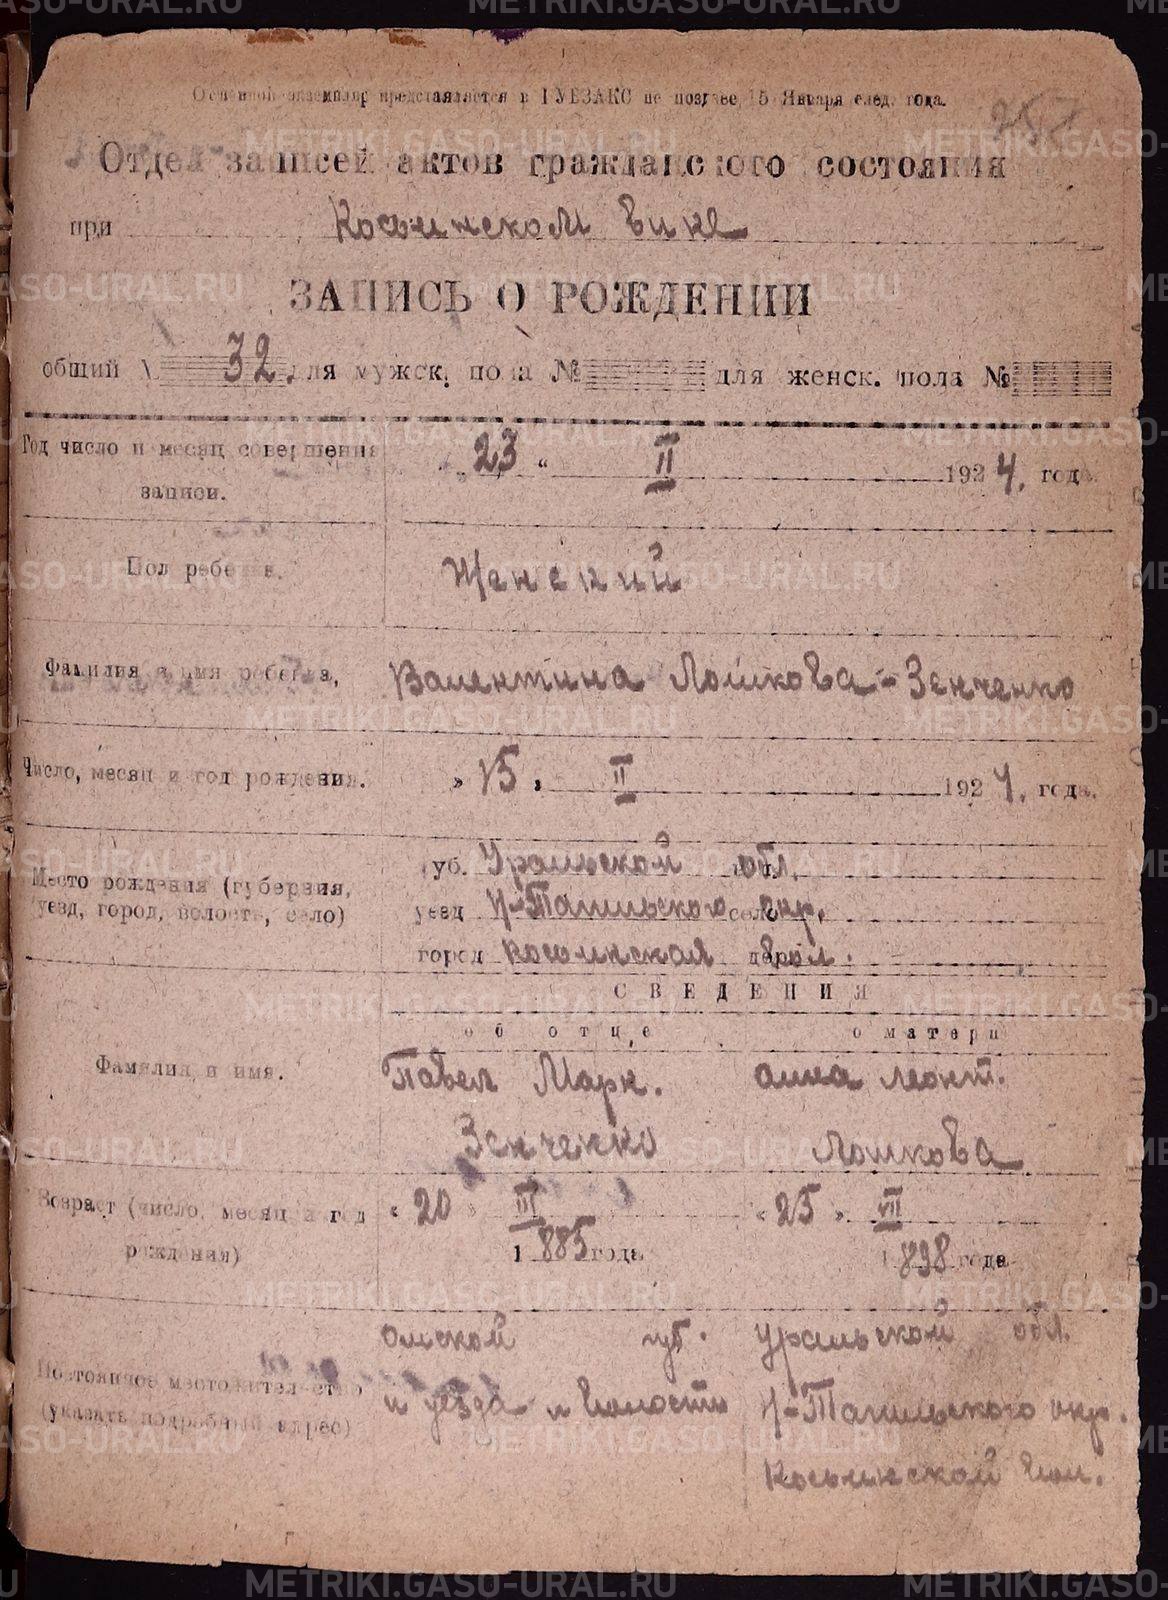 Отдельной экземпляр представляется в ГУБЗАКС не позднее 15 Января след. года.
Отдел записей актов гражданского состояния
при Косьинском вике
ЗАПИСЬ О РОЖДЕНИИ
общий № 32. для мужск. пола № для женск. пола №
Год число и месяц совершения записи. „ 23 “ II 1924. года.
Пол ребенка. Женский
Фамилия и имя ребенка, Валентина Лошкова-Зенченко
Число, месяц и год рождения. „ 15 „ II 1924. года.
Место рождения (губерния, губ. Уральской обл.
уезд, город, волость, село) уезд Н-Тагильского село окр.
город Косьинская
СВЕДЕНИЯ
об отце о матери
Фамилия и имя. Павел Марк. Анна Леонт.
Зенченко Лошкова
Возраст (число, месяц и год „ 20 „ III „ 25 „ VII
рождения) 1885 года 1898 года
Омской губ. Уральской обл.
Постоянное местожительство и уезда и волости Н-Тагильского окр.
(указать подробный адрес) Косьинской вол.
METRIKI.GASO-URAL.RU